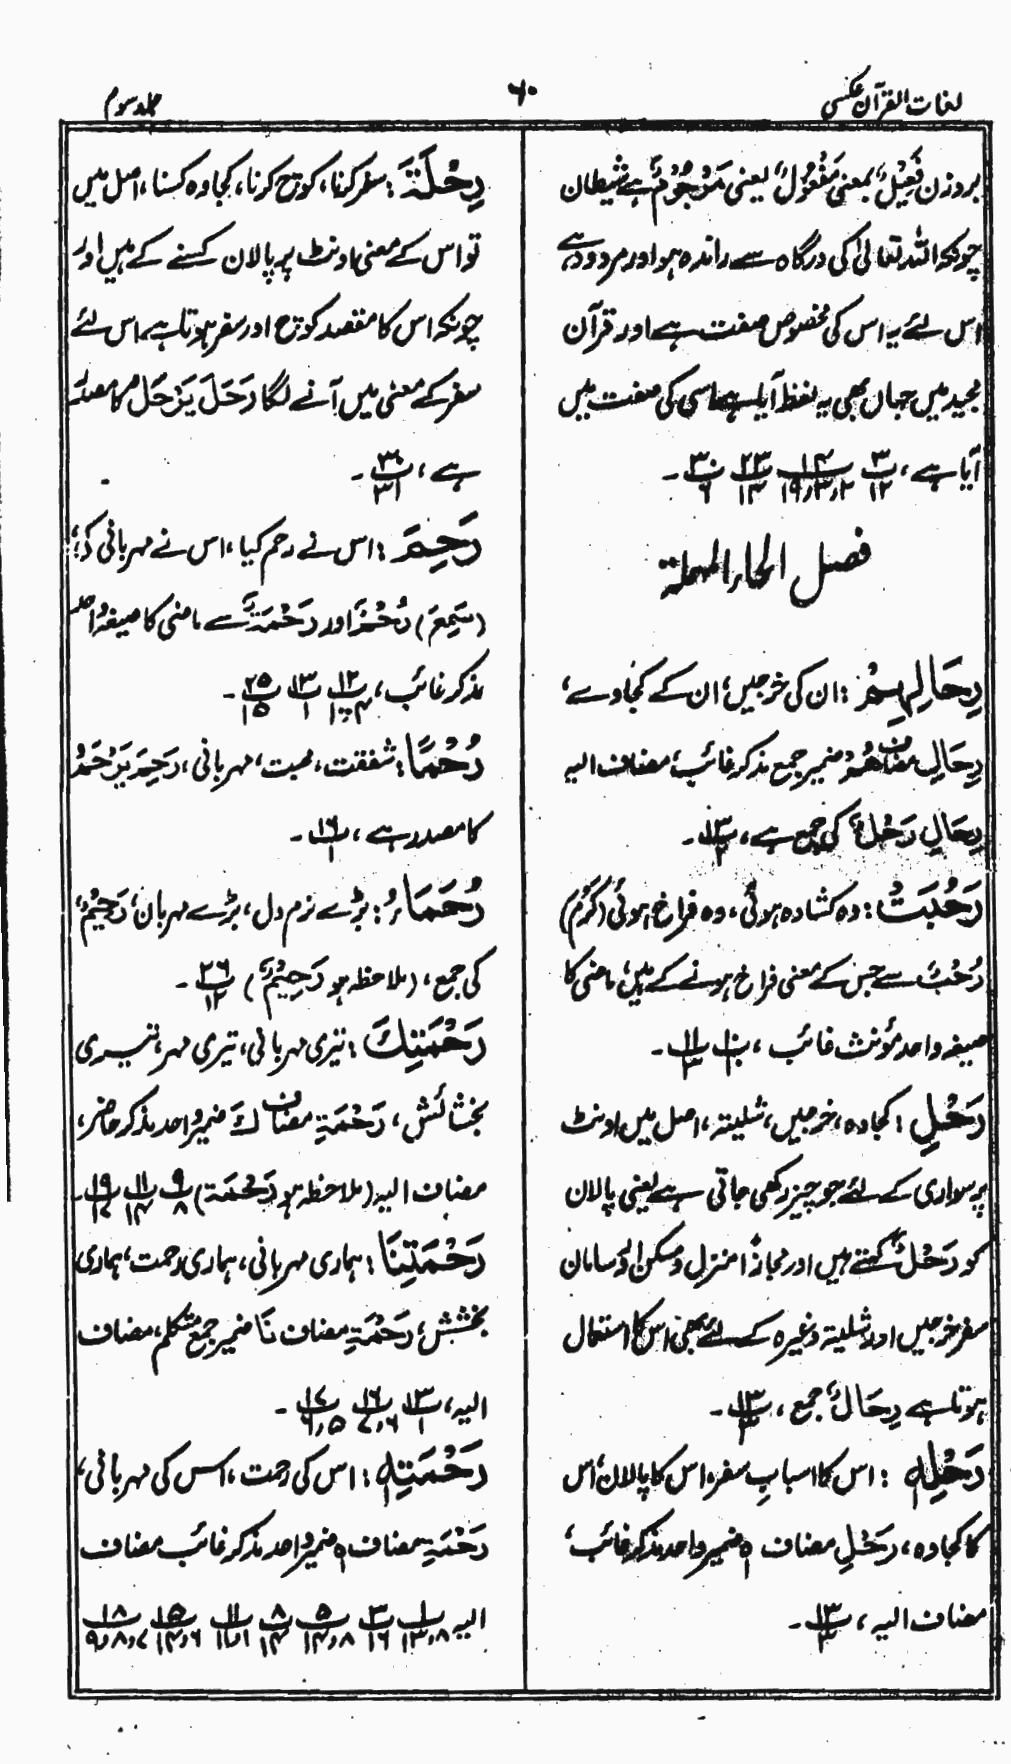 لغات القرآن عکسی
۶۰
جلد سوم
بروزن فَعِیْلٌ بمعنی مَفْعُوْلٌ یعنی مَرْجُوْمٌ ہے شیطان
چونکہ اللہ تعالیٰ کی درگاہ سے راندہ ہوا اور مردود ہے
اس لئے یہ اس کی مخصوص صفت ہے اور قرآن
مجید میں جہاں بھی یہ لفظ آیا ہے اسی کی صفت میں
آیا ہے، ۳/۱۲ ۱۴/۱۹،۳،۲ ۲۳/۱۴ ۳۰/۶ ۔
فصل الحاء المہملۃ
رِحَالِہِمْ : ان کی خرجیں، ان کے کجاوے،
رِحَالِ مضاف ھِمْ ضمیر جمع مذکر غائب، مضاف الیہ
رِحَالِ رَحْلٌ کی جمع ہے، ۱۳/۲ ۔
رَحُبَتْ : وہ کشادہ ہوئی، وہ فراخ ہوئی (کَرُمَ)
رُحْبٌ سے جس کے معنی فراخ ہونے کے ہیں، ماضی کا
صیغہ واحد مؤنث غائب ، ۱۰/۱۰ ۱۱/۳ ۔
رَحْلِ : کجاوہ، خرجیں، شلیتہ، اصل میں اونٹ
پر سواری کے لئے جو چیز رکھی جاتی ہے یعنی پالان
کو رَحْلٌ کہتے ہیں اور مجازًا منزل و مسکن اور سامان
سفر خرجیں اور شلیتہ وغیرہ کے لئے بھی اس کا استعمال
ہوتا ہے رِحَالٌ جمع ، ۱۳/۳ ۔
رَحْلِہٖ : اس کا اسباب سفر، اس کا پالان، اس
کا کجاوہ، رَحْلِ مضاف ہٖ ضمیر واحد مذکر غائب،
مضاف الیہ ، ۱۳/۳ ۔
رِحْلَۃَ : سفر کرنا، کوچ کرنا، کجاوہ کسنا، اصل میں
تو اس کے معنی اونٹ پر پالان کسنے کے ہیں اور
چونکہ اس کا مقصد کوچ اور سفر ہوتا ہے، اس لئے
سفر کے معنی میں آنے لگا رَحَلَ یَرْحَلُ کا مصدر
ہے، ۳۰/۳۱ ۔
رَحِمَ : اس نے رحم کیا، اس نے مہربانی کی،
(سَمِعَ) رُحْمٌ اور رَحْمَۃٌ سے ماضی کا صیغہ واحد
مذکر غائب، ۱۲/۱،۴ ۱۳/۱ ۲۵/۱۵ ۔
رُحْمًا : شفقت، محبت، مہربانی، رَحِمَ یَرْحَمُ
کا مصدر ہے، ۱۶/۱ ۔
رُحَمَاءُ : بڑے نرم دل، بڑے مہربان، رَحِیْمٌ
کی جمع، (ملاحظہ ہو رَحِیْمٌ) ۲۶/۱۲ ۔
رَحْمَتِكَ : تیری مہربانی، تیری مہر، تیری
بخشائش، رَحْمَۃِ مضاف كَ ضمیر واحد مذکر حاضر،
مضاف الیہ (ملاحظہ ہو رَحْمَۃ) ۹/۸ ۱۱/۱۴ ۱۹/۱۷ ۔
رَحْمَتِنَا : ہماری مہربانی، ہماری رحمت، ہماری
بخشش، رَحْمَۃِ مضاف نَا ضمیر جمع متکلم، مضاف
الیہ، ۱۳/۱ ۱۶/۷،۶ ۱۷/۶،۵ ۔
رَحْمَتِہٖ : اس کی رحمت، اس کی مہربانی،
رَحْمَۃِ مضاف ہٖ ضمیر واحد مذکر غائب مضاف
الیہ ۱/۱۳،۸ ۳/۱۶ ۵/۱۴،۸ ۸/۱۴ ۱۱/۱۶،۱ ۱۵/۱۴،۶ ۱۸/۹،۸،۷